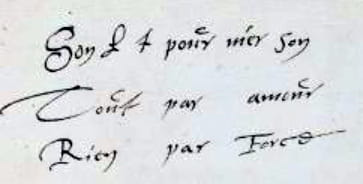 Son pour son
Tout par amour
Rien par Force